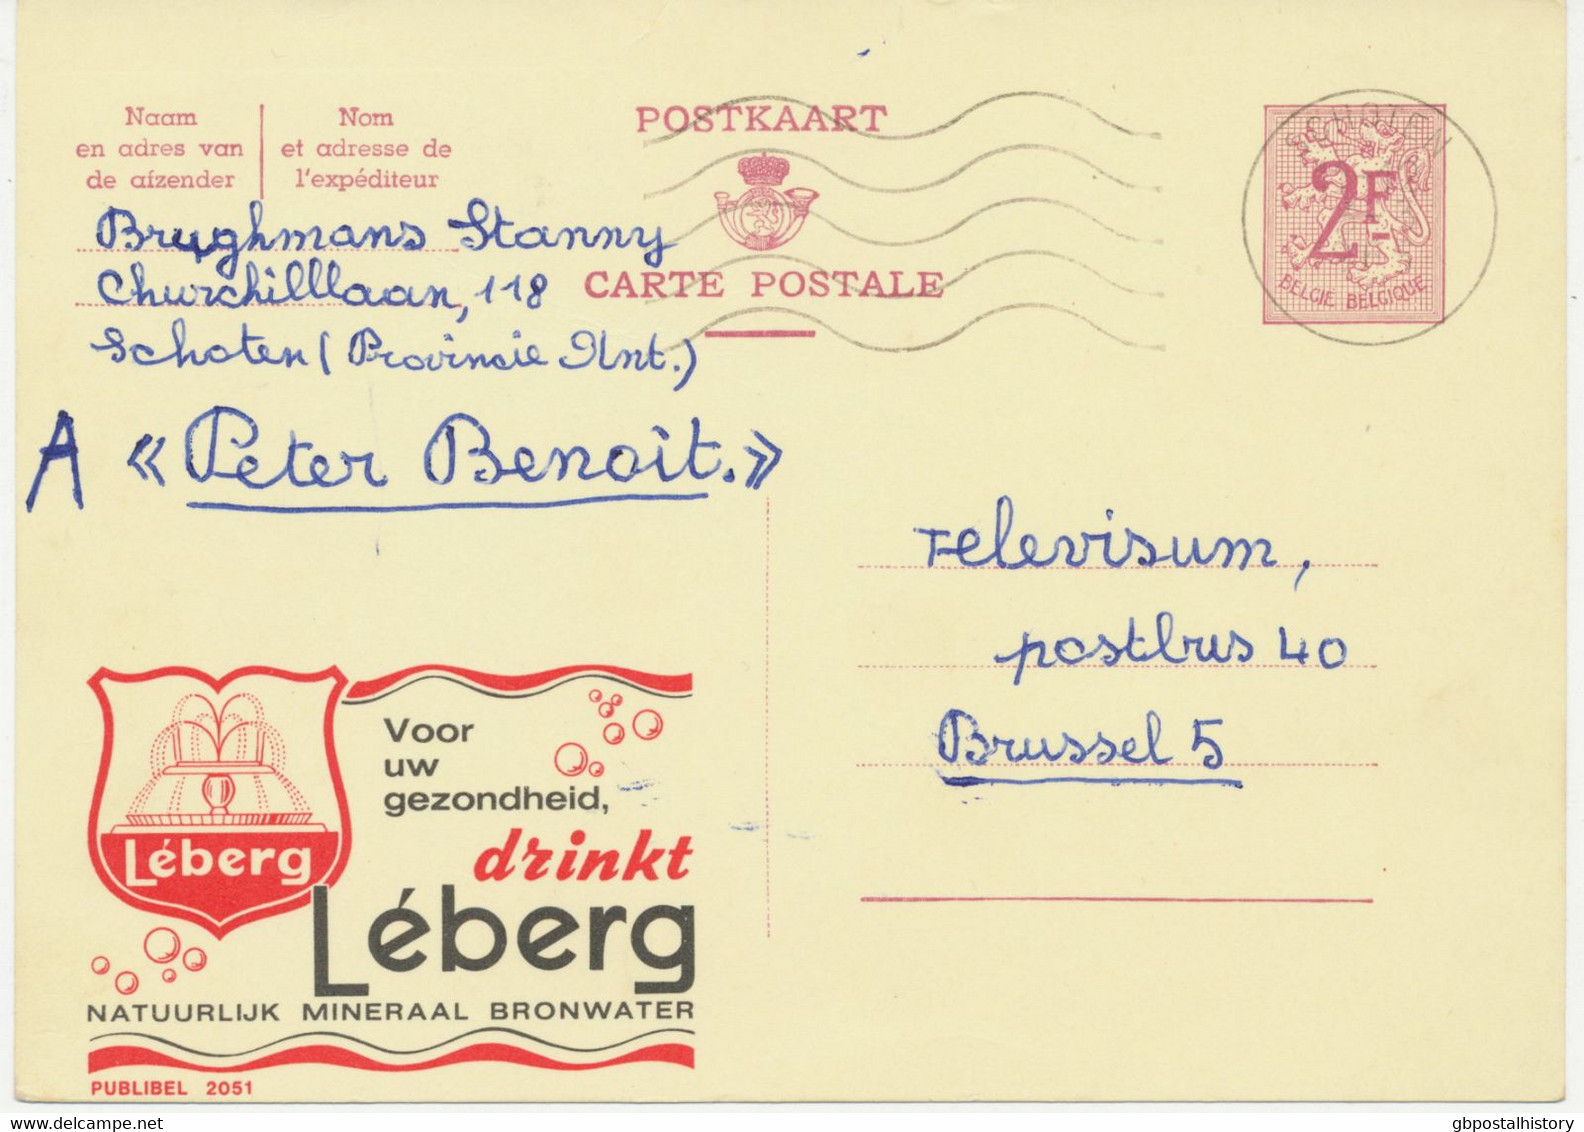 Naam
en adres van
de afzender
Nom
et adresse de
l'expéditeur
POSTKAART
CARTE POSTALE
SCHOTEN
2F
BELGIE BELGIQUE
Brughmans Stanny
Churchilllaan, 118
Schoten (Provincie Ant.)
A « Peter Benoit. »
Televisum,
postbus 40
Brussel 5
Voor
uw
gezondheid,
drinkt
Léberg
Léberg
NATUURLIJK MINERAAL BRONWATER
PUBLIBEL 2051
gbpostalhistory